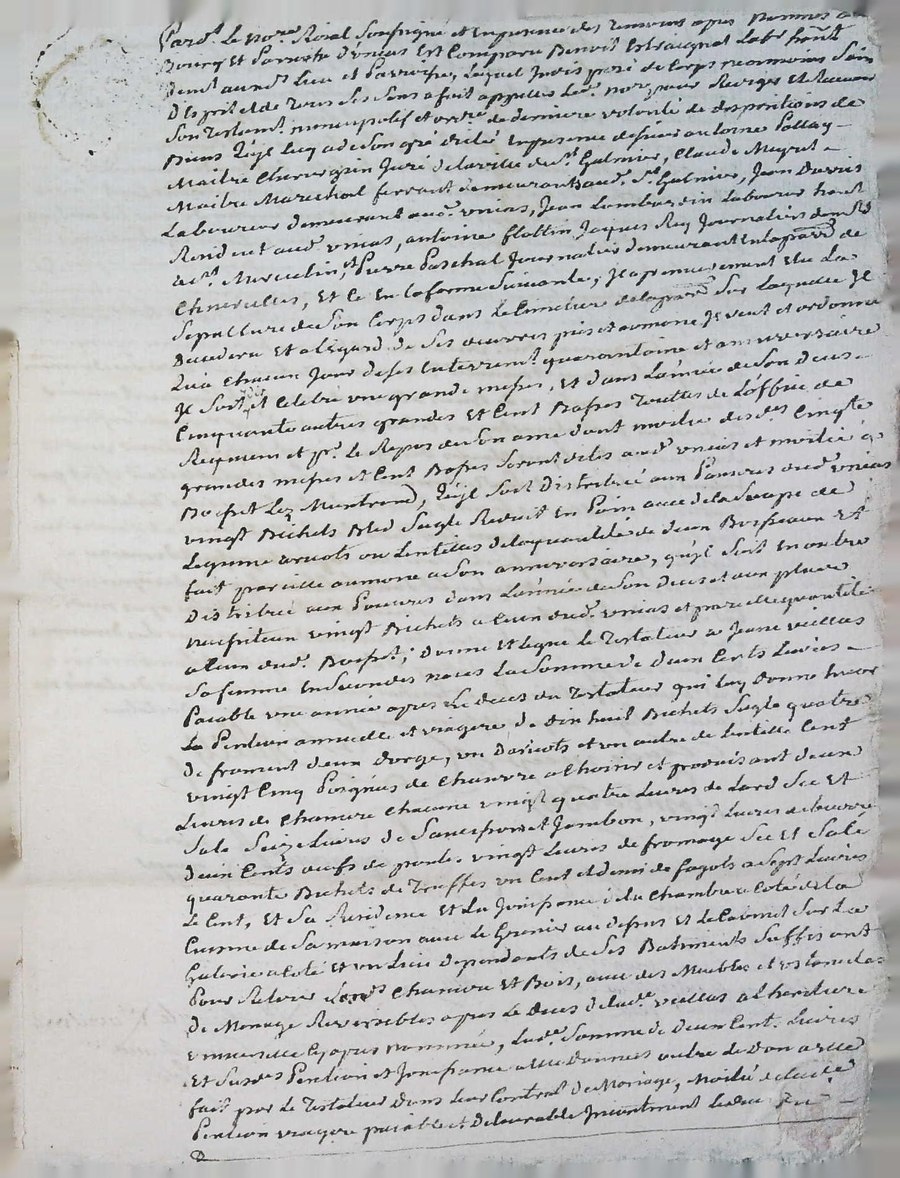 Pard.t Le no.re Roial Soussigné et En presence des Temoins apres Nommés au
Bourg Et Parroisse d'Unias Est Comparu Benoit Lab.r hab.t
dem.t aud.t Lieu et Parroisse, Lequel indisposé de Corps neanmoins Sain
D'Esprit et de Tous Ses Sens a fait appeller Led. no.re pour Rediger Et Recevoir
Son Testam.t noncupatif et ordre de derniere volonté de dispositions de
Biens qu'jl luy a de Son gré dicté En presence de Sieur antoine Pallay
Maitre Chirurgien Juré de la ville de S.t Galmier, Claude Meyret
Maitre Marechal ferrant demeurant aud. S.t Galmier, Jean
Laboureur demeurant aud. Unias, Jean Lombardin Laboureur
Resident aud. Unias, antoine flottin Jaques Rey Journaliers dem.t
a S.t Marcelin, et Pierre Paschal Journalier demeurant En la parr.e de
Et Ce En la forme Suivante; Jl a premierement Elu La
Sepulture de Son Corps dans Le Cimetiere de la parr.e Sur Laquelle Jl
Decedera Et a l'Egard de Ses œuvres pies et aumone Jl veut et ordonne
qu'a Chacun Jour de Ses Enterrem.t quarantaine et anniversaire
Jl Soit dit et Celebré une grande messe, Et dans L'année de Son Deces
Cinquante autres grandes Et Cent Basses Toutes de L'office de
Requiem et p.r Le Repos de Son ame dont moitié des d. Cinq.te
grandes messes et Cent Basses Seront dites aud. Unias et moitié a
Boisset Lez Montrond, qu'jl Soit Distribué aux Pauvres dud. Unias
vingt Bichets Bled Seigle Reduit En Pain avec de la Soupe de
Legume aricots ou Lentilles de la quantité de deux Boisseaux Et
fait pareille aumone a Son anniversaire, qu'jl Soit En outre
Distribué aux Pauvres dans L'année de Son Deces et aux plus
necessiteux vingt Bichets a Ceux dud. Unias et pareille quantité
a Ceux dud. Boisset; donne et Legue Le Testateur a Jeane vieillas
Sa femme En Secondes noces La Somme de deux Cents Livres
Paiable une année apres Le deces du Testateur qui luy donne Encor
La Pension annuelle et viagere de dix huit Bichets Seigle quatre
de froment deux d'orge, un D'aricots et un autre de Lentille Cent
vingt Cinq Poignées de Chanvre a Choisir et produisant deux
Livres de Chanvre Chacune vingt quatre Livres de Lard Sec Et
Salé Seize Livres de et Jambon, vingt Livres de beurre
deux Cents œufs de poule, vingt Livres de fromage Sec Et Salé
quarante Bichets de Truffes un Cent et demi de fagots a Sept Livres
Le Cent, Et Sa Residence Et La Jouissance de la Chambre a Coté de la
Cuisine de Sa maison avec Le Grenier au dessus Et Le Cabinet Sur La
Galerie a Coté Et un Lieu Dependants de Ses Batiments Suffisant
Pour Retirer Chanvre Et Bois, avec des Meubles et
De Menage Reversibles apres Le Deces de lad.e vieillas a L'heritiere
universelle Cy apres nommée, Lad.e Somme de deux Cent Livres
Et Susd.es Pension et Jouissance a Elle Données outre Le Don a Elle
fait par Le Testateur Dans Leur Contrat de Mariage, Moitié de lad.e
Pension viagere paiable et Delivrable Jncontinent Le